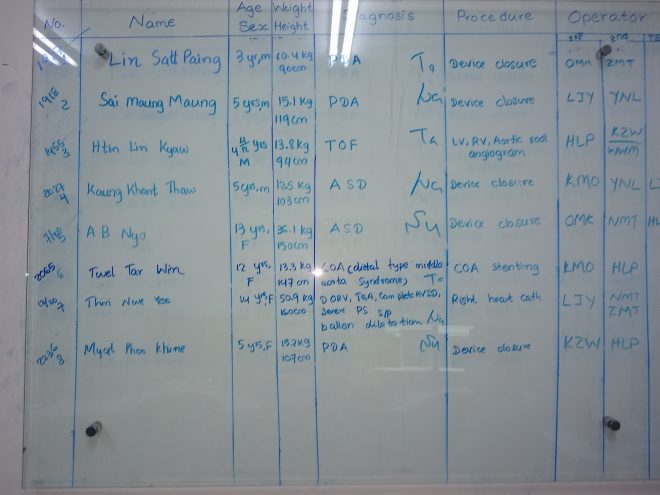 No. Name Age Sex Weight Height Diagnosis Procedure Operator
1st 2nd
Lin Satt Paing 3 yrs,m 10.4 kg 90cm PDA Device closure OMK ZMT
1918 2 Sai Maung Maung 5 yrs,m 15.1 kg 119cm PDA Device closure LJY YNL
3 Htin Lin Kyaw M 13.8kg 94cm TOF LV, RV, Aortic root angiogram HLP KZW
4 Kaung Khant Thaw 5yrs,m 12.5 kg 103cm ASD Device closure KMO YNL
5 A B Nyo 13 yrs, F 36.1 kg 150cm ASD Device closure OMK NMT
6 Twel Tar Win 12 yrs, F 147 cm COA (distal type middle aorta syndrome) COA stenting KMO HLP
7 Thiri Nwe 14 yrs,F 50.9 kg 160cm DORV, Complete AVSD, severe PS S/P balon dilatation Right heart cath LJY NMT ZMT
2236 8 Myad Phoo Khine 5 yrs,F 109cm PDA Device closure KZW HLP